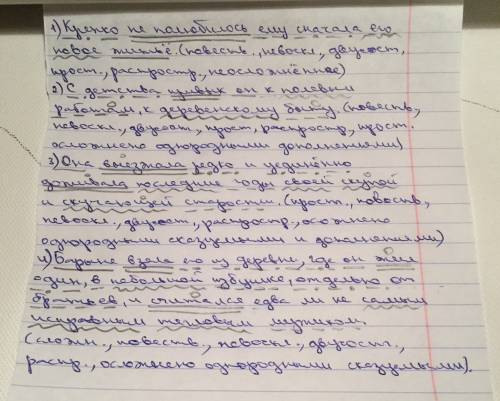 1) Крепко не полюбилось ему сначала его
новое житьё. (повеств., невоскл., двусост,
прост., распростр., неосложнённое)
2) С детства привык он к полевым
работам, к деревенскому быту. (повеств,
невоскл., двусост, прост, распростр, прост.
осложнено однородными дополнениями)
3) Она выезжала редко и уединённо
доживала последние годы своей скупой
и скучающей старости. (прост., повеств,
невоскл., двусост., распростр., осложнено
однородными сказуемыми и дополнениями)
4) Барыня взяла его из деревни, где он жил
один, в небольшой избушке, отдельно от
братьев, и считался едва ли не самым
исправным тягловым мужиком.
(сложн., повеств., невоскл., двусост.,
распр., осложнено однородными сказуемыми).